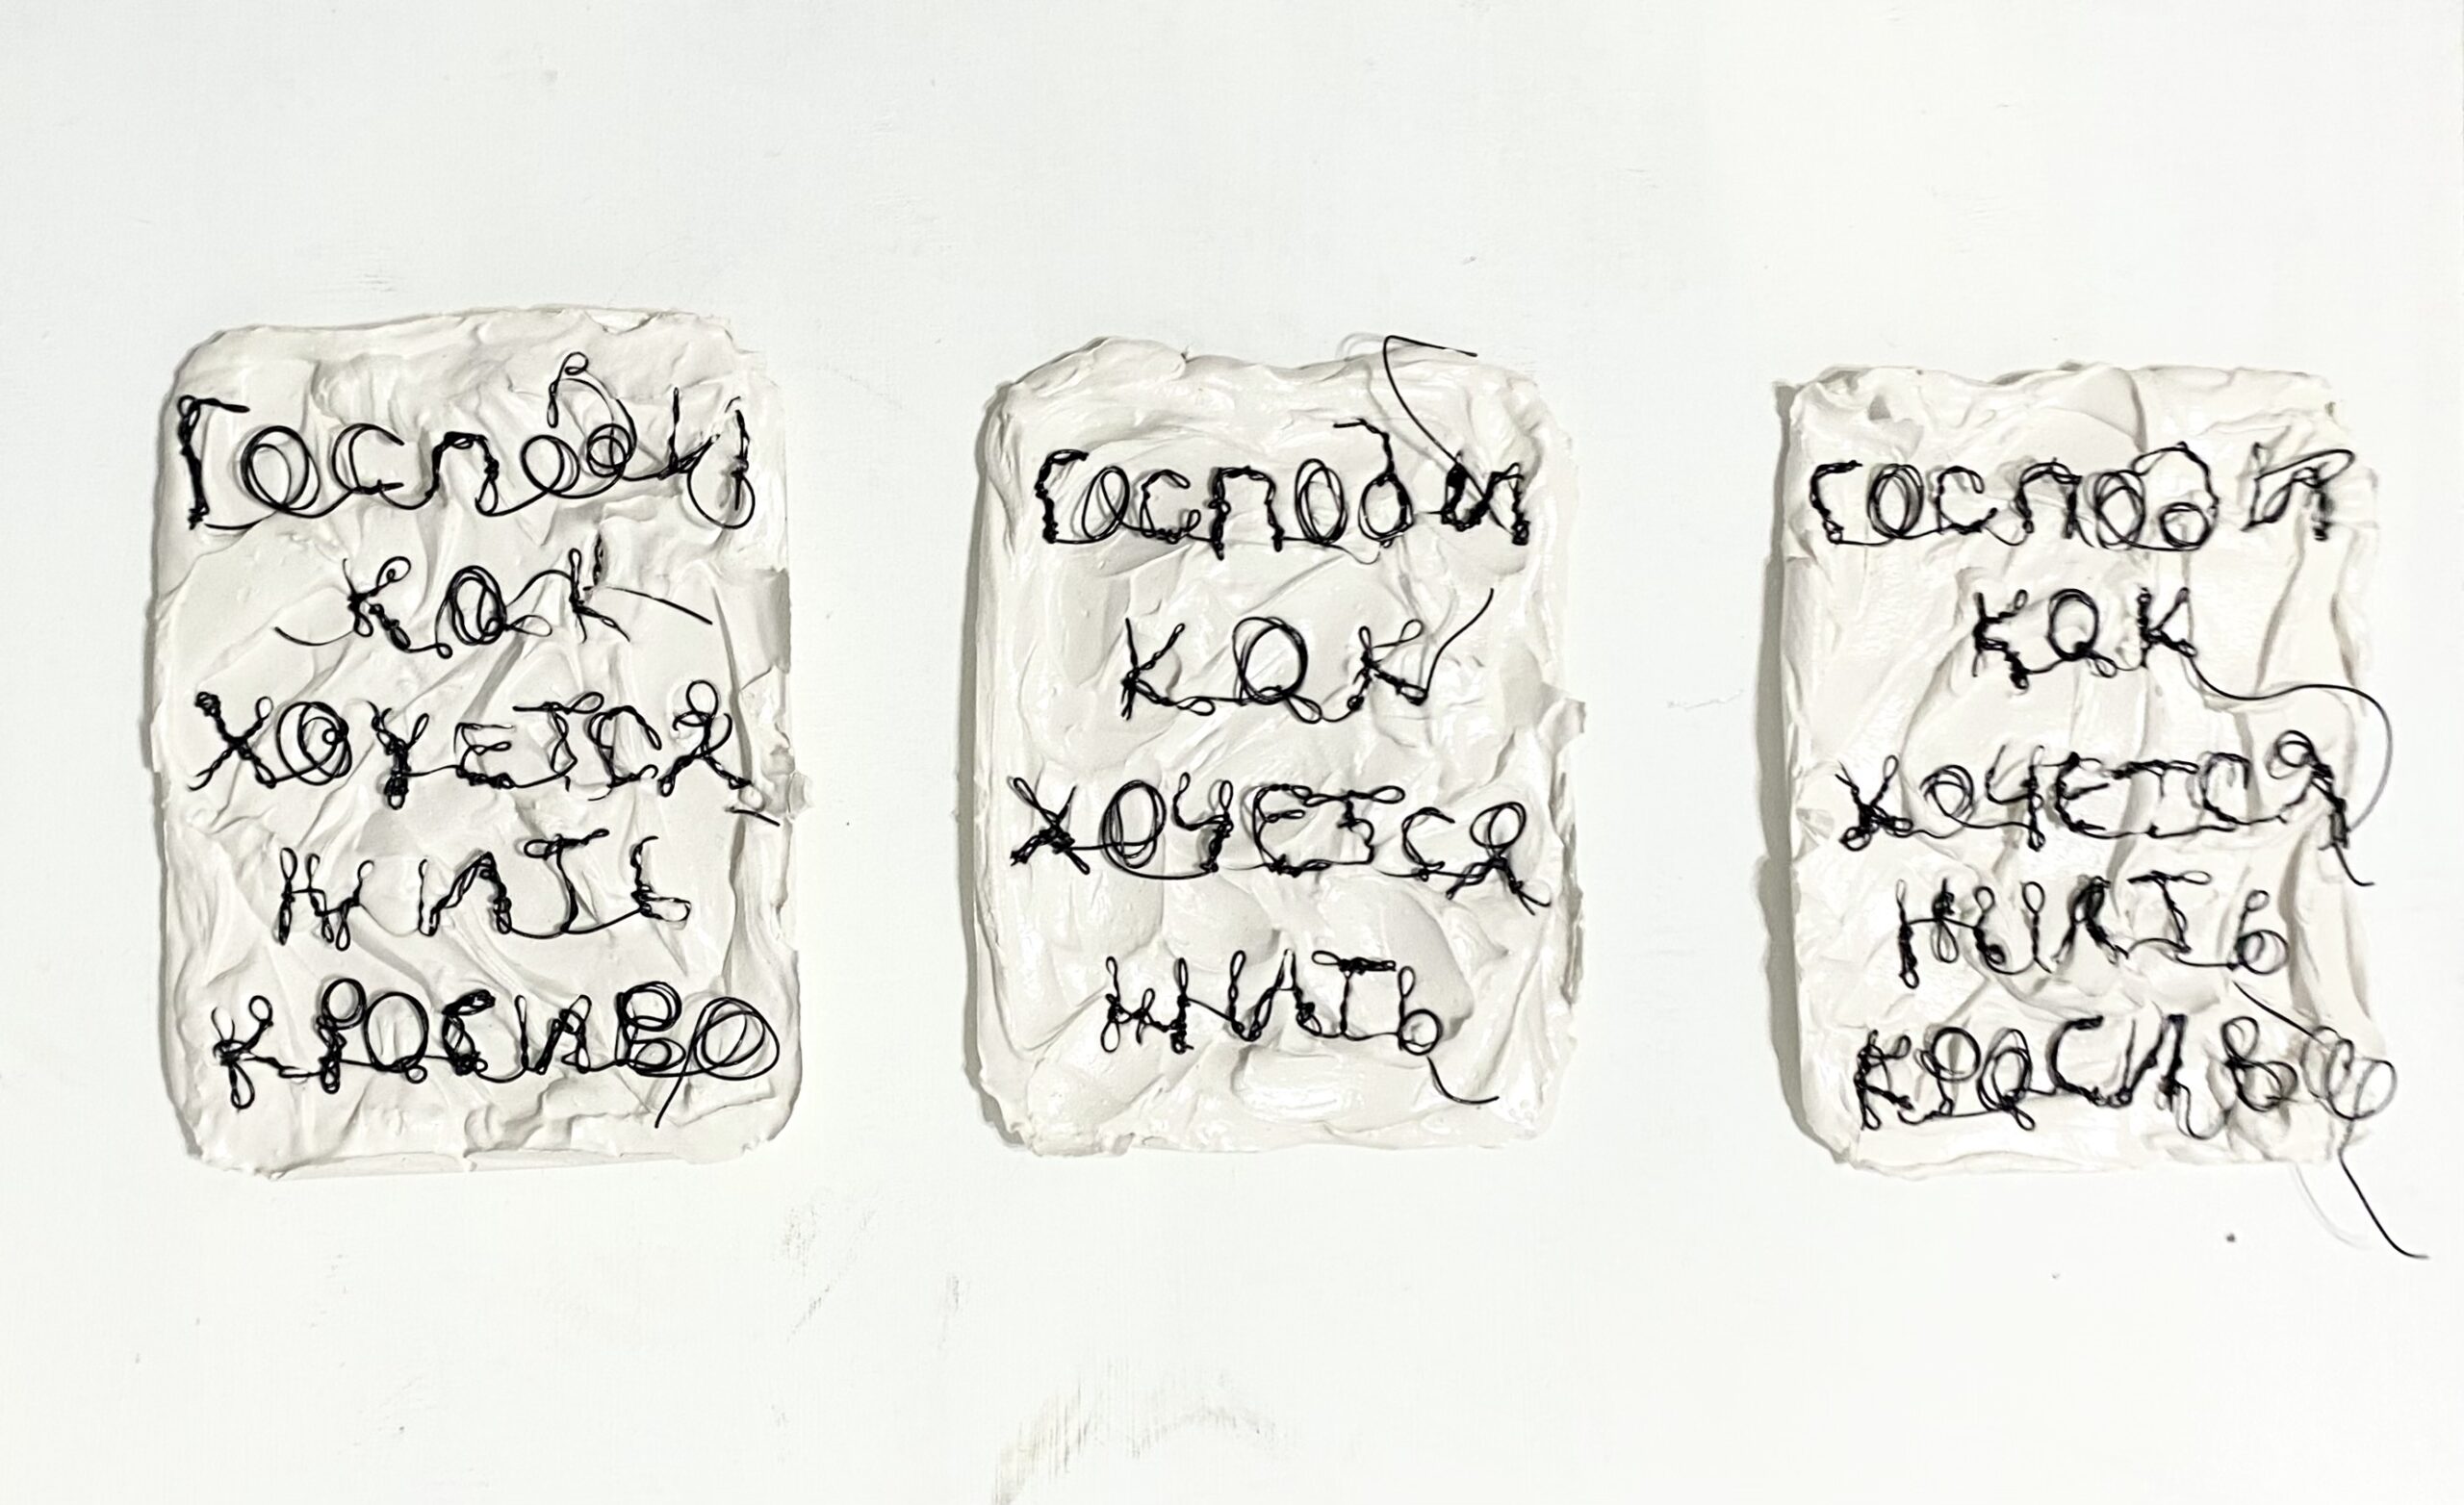 Господи
как
хочется
жить
красиво
господи
как
хочется
жить
господи
как
хочется
жить
красиво